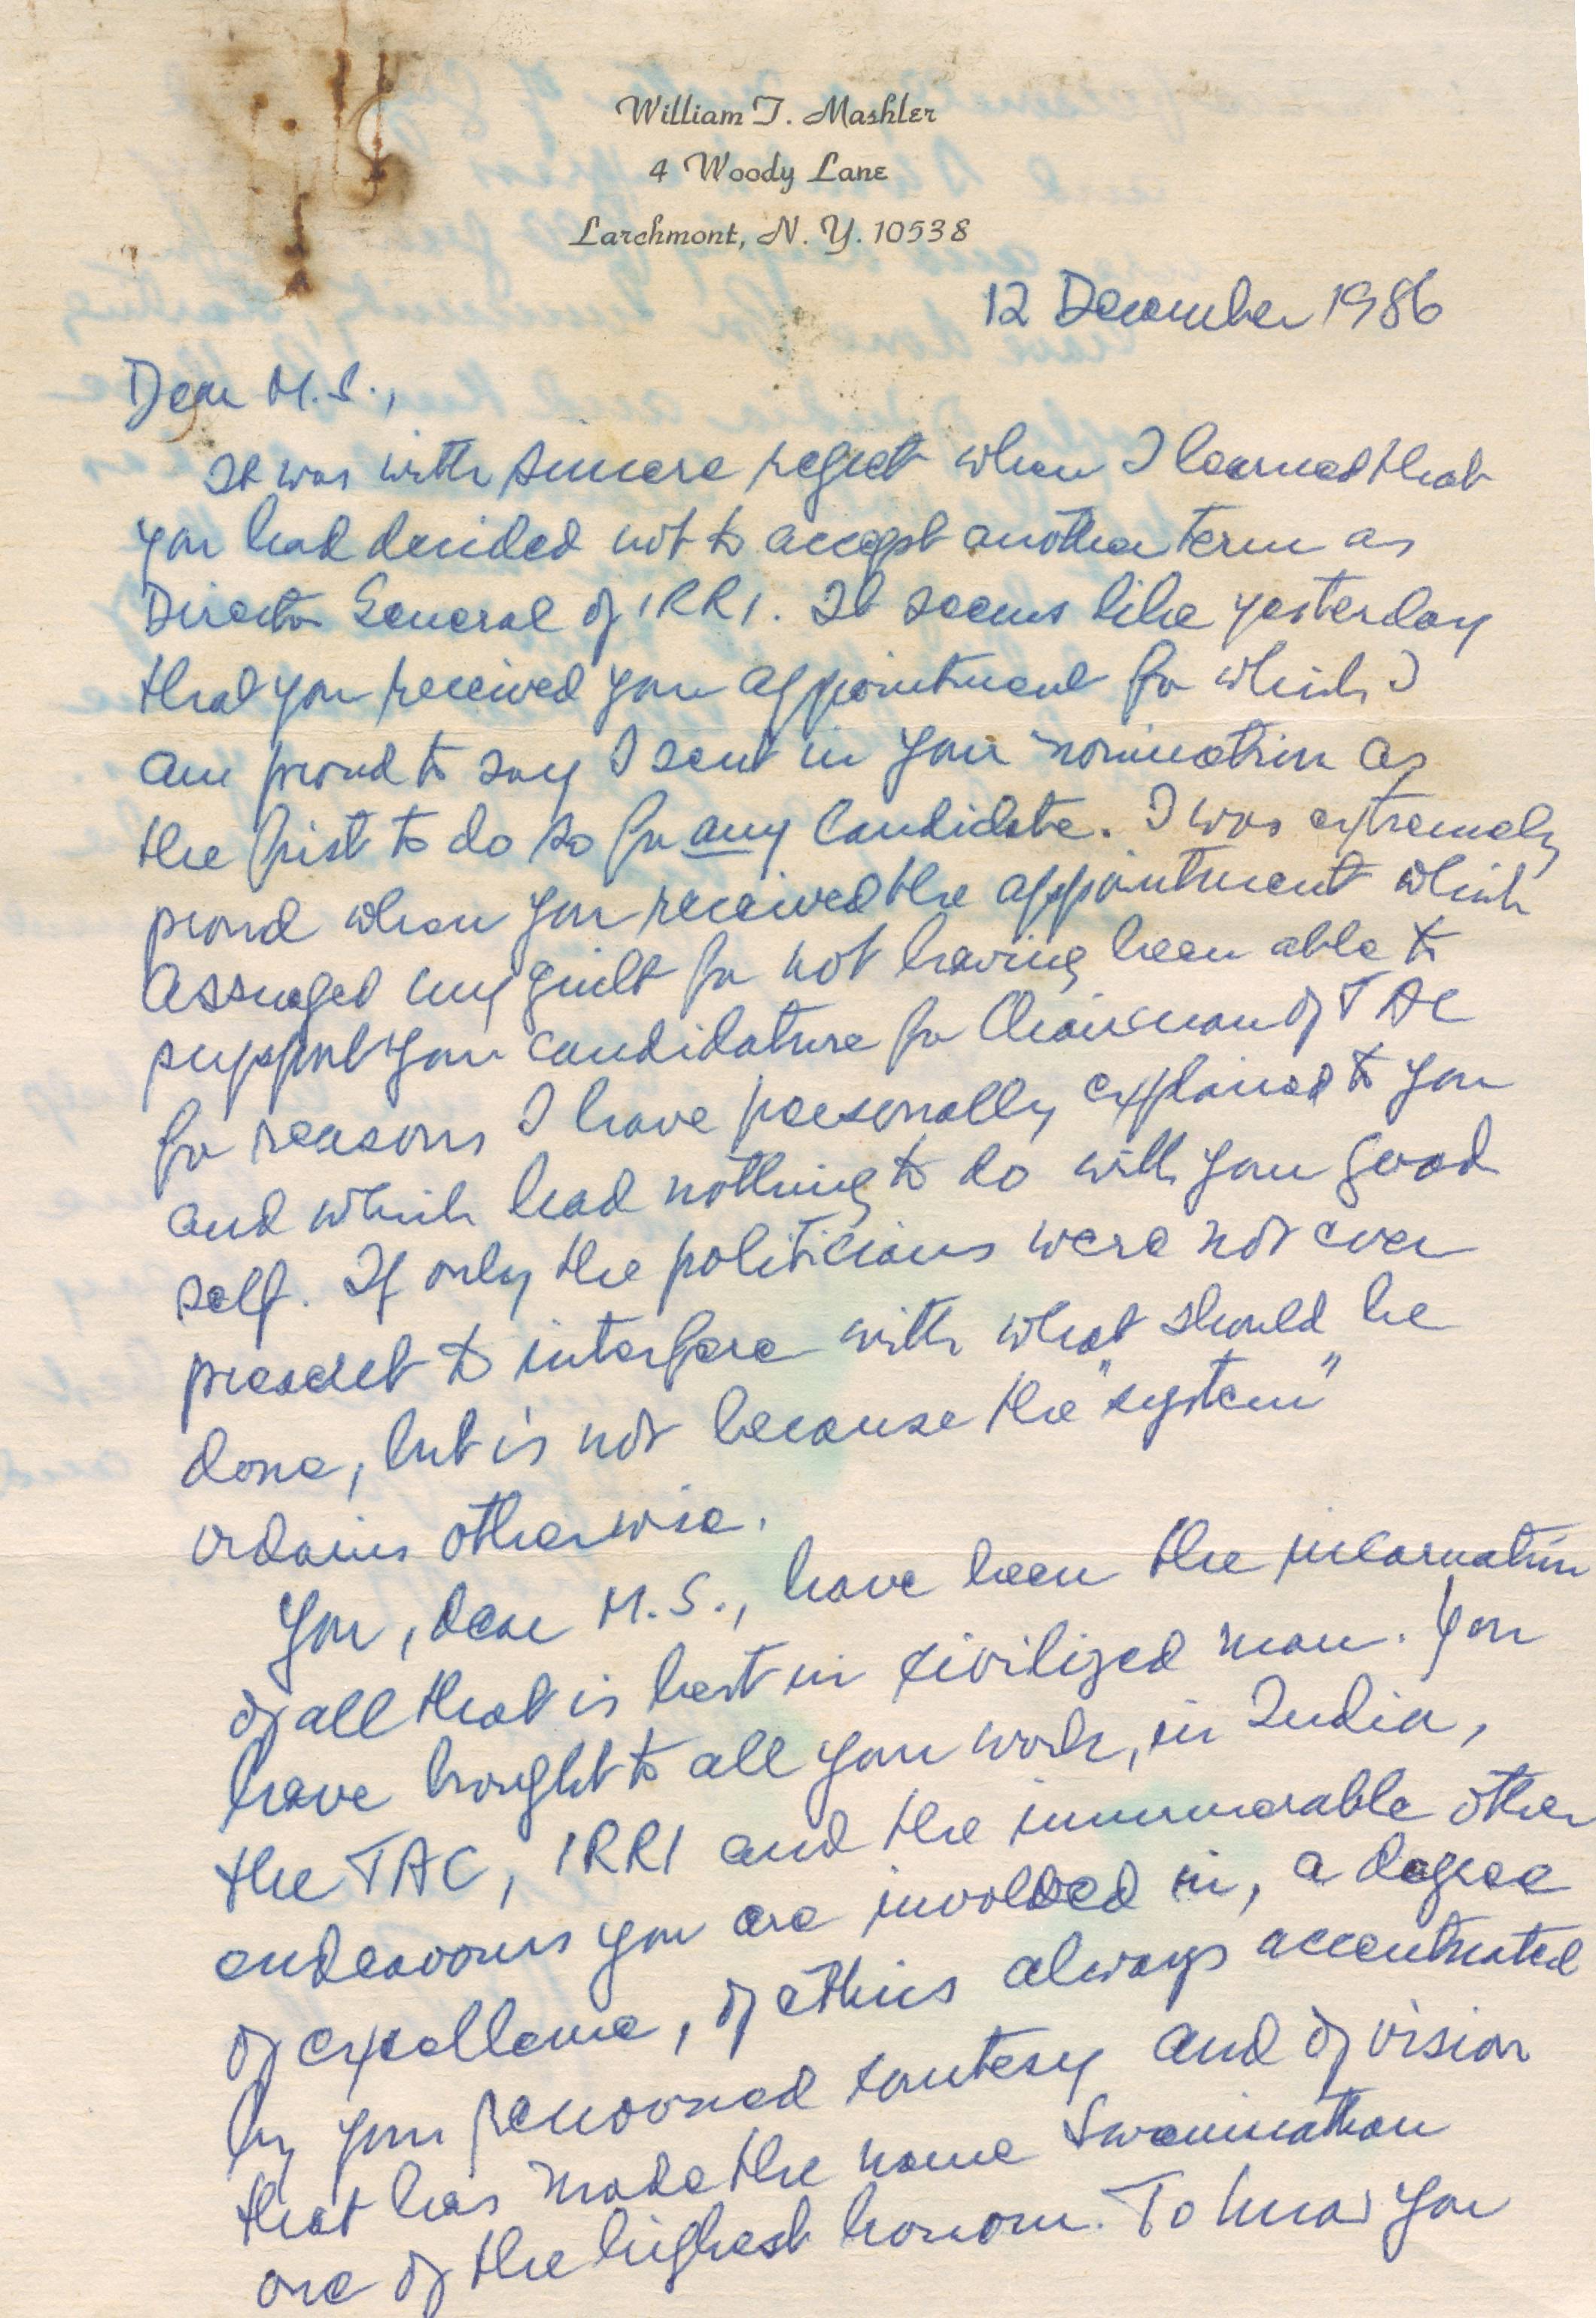 William T. Mashler
4 Woody Lane
Larchmont, N. Y. 10538
12 December 1986
Dear M.S.,
It was with sincere regret when I learned that
you had decided not to accept another term as
Director General of IRRI. It seems like yesterday
that you received your appointment for which I
am proud to say I sent in your nomination as
the first to do so for any candidate. I was extremely
proud when you received the appointment which
assuaged my guilt for not having been able to
support your candidature for Chairman of TAC
for reasons I have personally explained to you
and which had nothing to do with your good
self. If only the politicians were not ever
present to interfere with what should be
done, but is not because the "system"
ordains otherwise.
You, dear M.S., have been the incarnation
of all that is best in civilized man. You
have brought to all your work, in India,
the TAC, IRRI and the innumerable other
endeavours you are involved in, a degree
of excellence, of ethics always accentuated
by your renowned courtesy and of vision
that has made the name Swaminathan
one of the highest honour. To know you